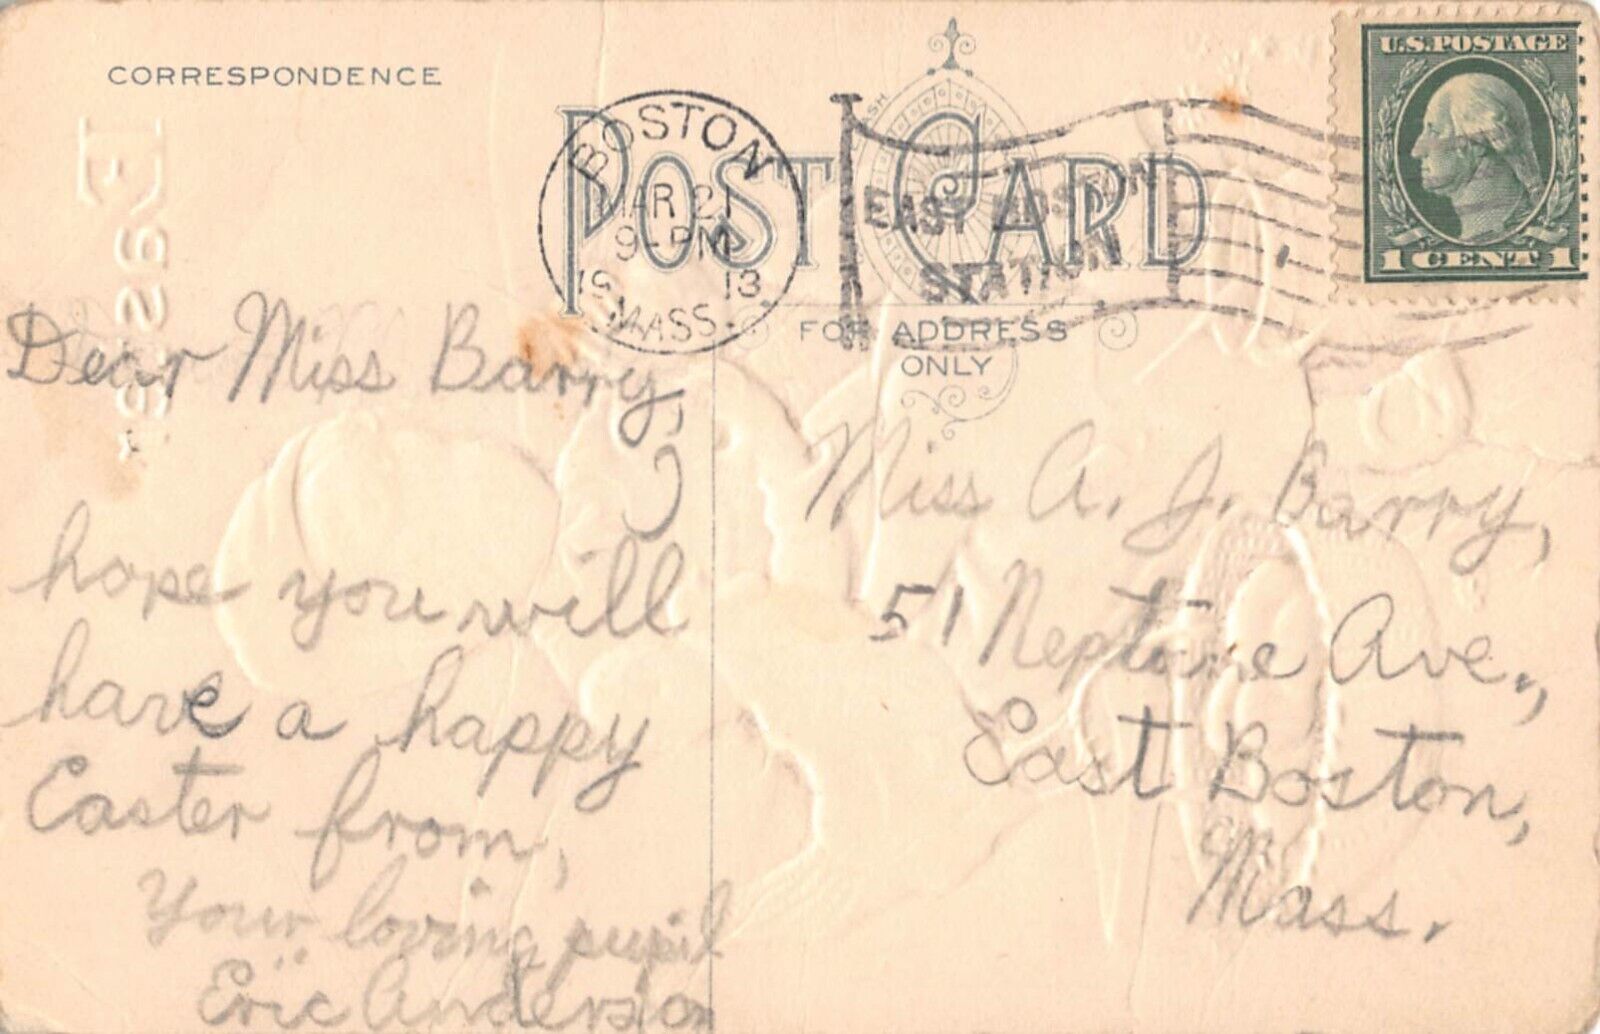 CORRESPONDENCE
POST CARD
FOR ADDRESS
ONLY
BOSTON
MAR 21
9-PM
1913
MASS.
EAST BOSTON
STATION
U.S. POSTAGE
1 CENT 1
Dear Miss Barry,
I
hope you will
have a happy
Easter from,
Your loving pupil
Eric Anderson
Miss A. J. Barry,
51 Neptune Ave.,
East Boston,
Mass.